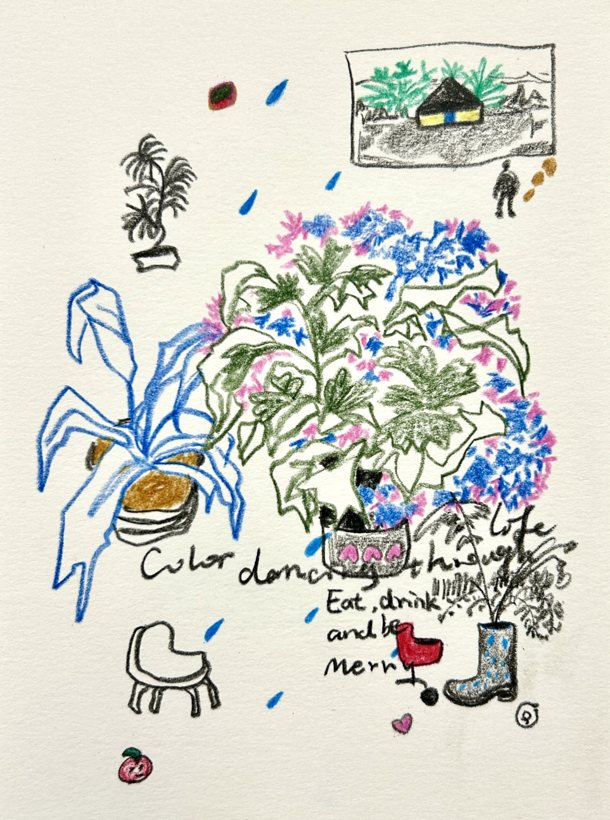 Color dancing through life
Eat, drink
and be
Merry